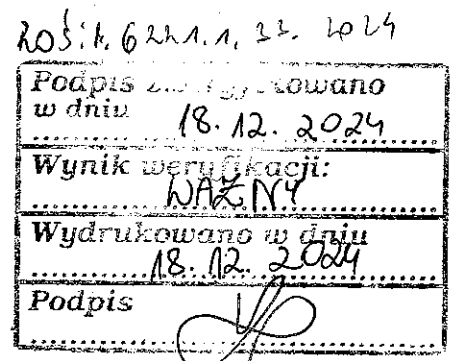 6221.1.33.2024
Podpis
w dniu 18.12.2024
Wynik weryfikacji:
WAŻNY
Wydrukowano w dniu
18.12.2024
Podpis